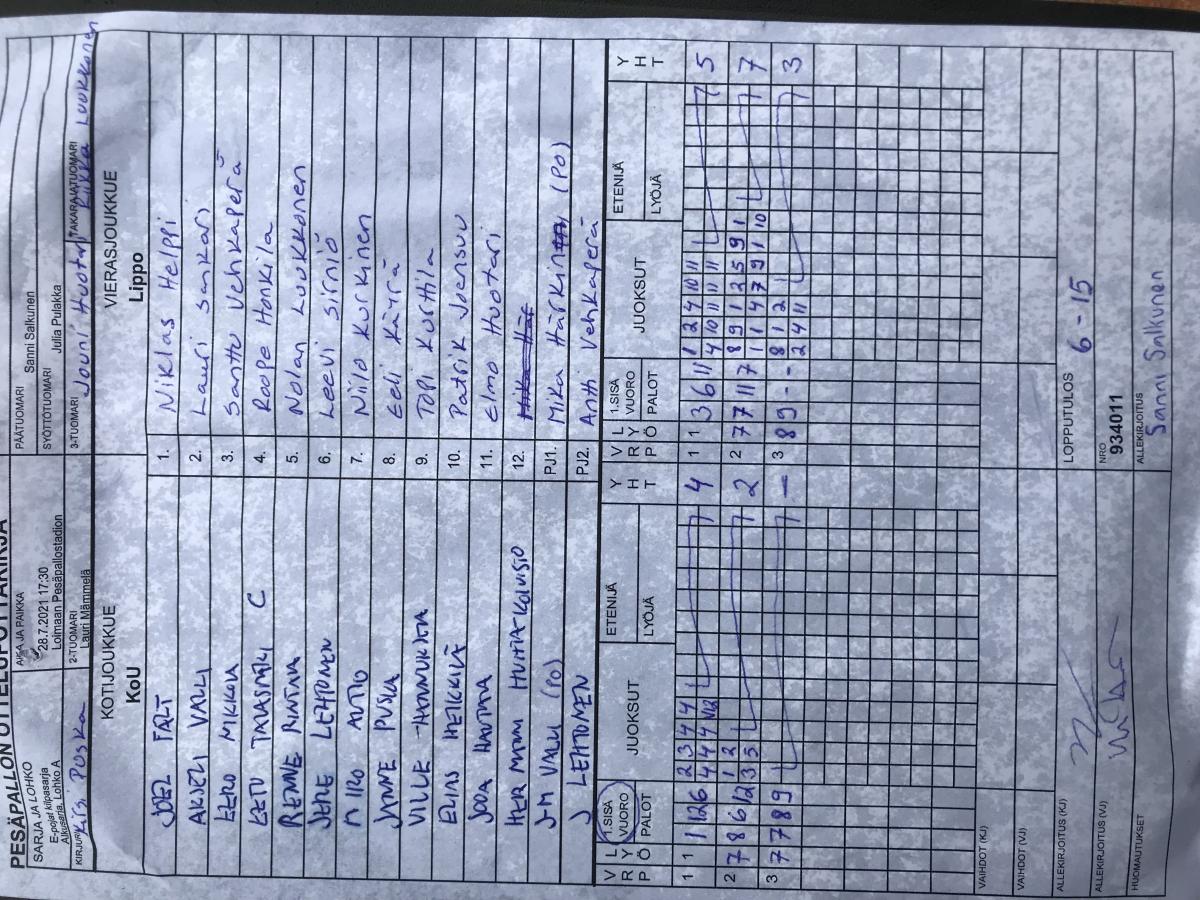 PESÄPALLON OTTELUPÖYTÄKIRJA
SARJA JA LOHKO
E-pojat kilpasarja
Alkusarja, Lohko A
AIKA JA PAIKKA
28.7.2021 17:30
Loimaan Pesäpallostadion
PÄÄTUOMARI
Sanni Salkunen
SYÖTTÖTUOMARI
Julia Pulakka
KIRJURI
Poska
2-TUOMARI
Lauri Mämmelä
3-TUOMARI
Jouni Huotari
TAKARAJATUOMARI
Riikka Luukkonen
KOTIJOUKKUE
KoU
VIERASJOUKKUE
Lippo
JOEL FÄLT
1. Niklas Helppi
AKSELI VALLI
2. Lauri Sankari
EERO MIKKOLA
3. Santtu Vehkaperä
EETU C
4. Roope Honkila
5. Nolan Luukkonen
LEHTONEN
6. Leevi Sirniö
AUTIO
7. Niilo Kurkinen
JANNE PUSKA
8. Eeli Käyrä
VILLE HANNUKKA
9. Topi Kurttila
ELIAS HEIKKILÄ
10. Patrik Joensuu
JOOA HAUTALA
11. Elmo Huotari
12.
J-M VALLI (PO)
PJ1. Mika Härkin (PO)
J LEHTONEN
PJ2. Antti Vehkaperä
V R P
L Y Ö
1.SISÄ VUORO
PALOT
JUOKSUT
ETENIJÄ
LYÖJÄ
Y H T
V R P
L Y Ö
1.SISÄ VUORO
PALOT
JUOKSUT
ETENIJÄ
LYÖJÄ
Y H T
1 1 1 12 6 2 3 4 4 4
4 4 4 12
1 1 3 6 11 1 2 4 10 11 1 5
4 10 11 11 11
2 7 8 6 12 1 2 2
3 5
2 7 7 11 7 8 9 1 2 5 9 1 7
1 1 4 7 9 1 10
3 7 7 8 9 –
3 8 9 - - 8 1 2 1 3
2 4 11
VAIHDOT (KJ)
VAIHDOT (VJ)
ALLEKIRJOITUS (KJ)
LOPPUTULOS
6 - 15
ALLEKIRJOITUS (VJ)
NRO
934011
HUOMAUTUKSET
ALLEKIRJOITUS
Sanni Salkunen